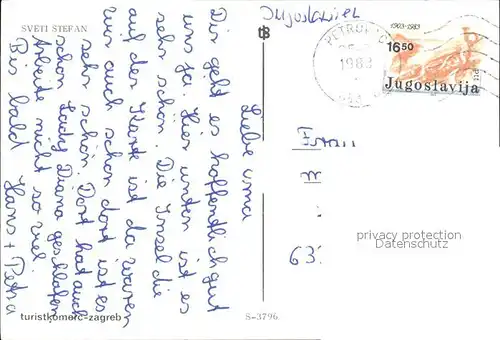 SVETI STEFAN
Liebe Oma
Dir geht es hoffentlich gut
uns ja. Hier unten ist es
sehr schön. Die Insel die
auf der Karte ist da waren
wir auch schon dort ist es
sehr schön. Dort hat auch
schon Lady Diana geschlafen
Arbeite nicht so viel.
Bis bald Hans + Petra
turistkomerc-zagreb
S-3796
Jugoslavien
PETROV
1983
1903-1983
16.50
Jugoslavija
Frau
M
63
privacy protection
Datenschutz